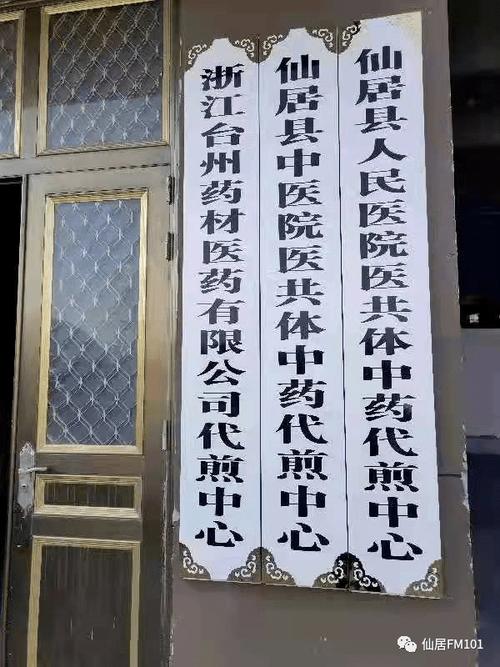 仙居县人民医院医共体中药代煎中心
仙居县中医院医共体中药代煎中心
浙江台州药材医药有限公司代煎中心
仙居FM101